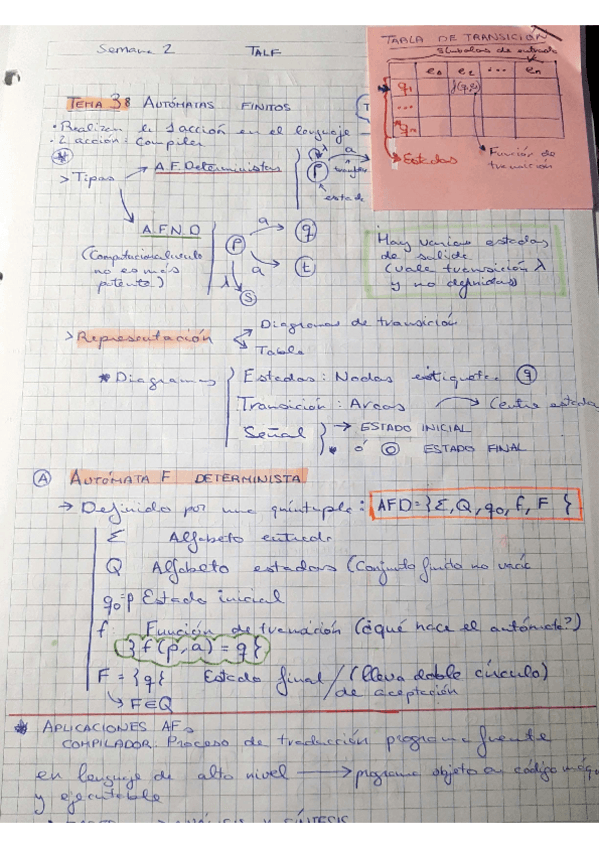 Semana 2 TALF
TABLA DE TRANSICIÓN
Símbolos de entrada
e₀ e₂ ... eₙ
q₁ f(q,e₂)
...
qₙ
Estados
* Función de transición
TEMA 3: AUTÓMATAS FINITOS
• Realizan la 1 acción en el lenguaje
• 2 acción: Compiler
> Tipos
A.F. Deterministas
λ
P a
estado
A.F.N.D
(Computacional
no es más
potente)
P a q
a t
λ S
Hay varios estados
de salida
(vale transición λ
y no definidas)
> Representación
Diagramas de transición
Tabla
* Diagramas
Estados: Nodos q
Transición: Arcos → Centre estado
Señal → ESTADO INICIAL
* ó ESTADO FINAL
A AUTÓMATA F DETERMINISTA
→ Definido por una quíntupla: AFD = {Σ, Q, q₀, f, F}
Σ Alfabeto entrada
Q Alfabeto estados (Conjunto finito no vacío
q₀=p Estado inicial
f Función de transición (¿qué hace el autómata?)
{f(p,a) = q}
F = {q} Estado final / (lleva doble círculo)
/ de aceptación
↳ F∈Q
* APLICACIONES AFs
COMPILADOR: Proceso de traducción programa fuente
en lenguaje de alto nivel → programa objeto en código máqu
y ejecutable
SÍNTESIS